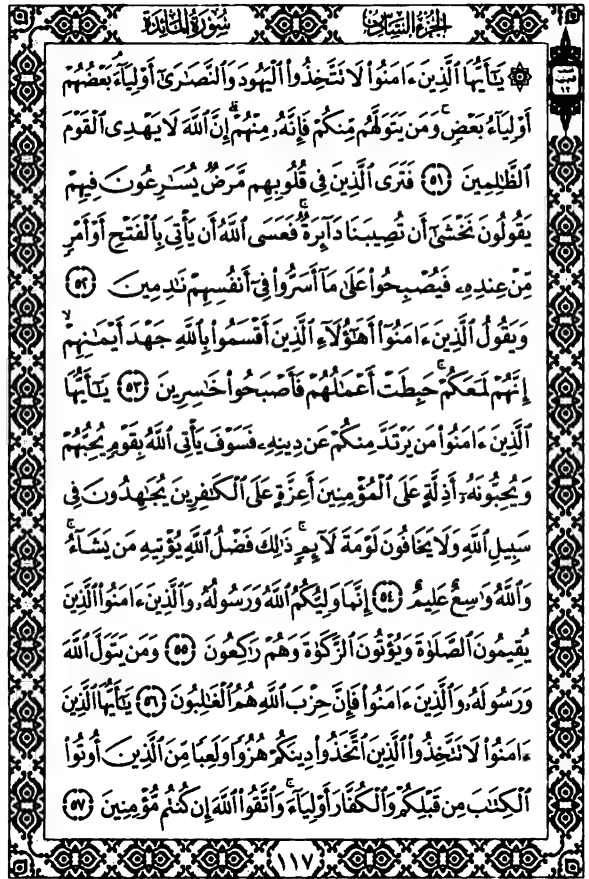 سُورَةُ المَائِدَة
الجُزءُ السَّادِسُ
۞ يَـٰٓأَيُّهَا ٱلَّذِينَ ءَامَنُوا۟ لَا تَتَّخِذُوا۟ ٱلْيَهُودَ وَٱلنَّصَـٰرَىٰٓ أَوْلِيَآءَ ۘ بَعْضُهُمْ
أَوْلِيَآءُ بَعْضٍ ۚ وَمَن يَتَوَلَّهُم مِّنكُمْ فَإِنَّهُۥ مِنْهُمْ ۗ إِنَّ ٱللَّهَ لَا يَهْدِى ٱلْقَوْمَ
ٱلظَّـٰلِمِينَ ﴿٥١﴾ فَتَرَى ٱلَّذِينَ فِى قُلُوبِهِم مَّرَضٌ يُسَـٰرِعُونَ فِيهِمْ
يَقُولُونَ نَخْشَىٰٓ أَن تُصِيبَنَا دَآئِرَةٌ ۚ فَعَسَى ٱللَّهُ أَن يَأْتِىَ بِٱلْفَتْحِ أَوْ أَمْرٍ
مِّنْ عِندِهِۦ فَيُصْبِحُوا۟ عَلَىٰ مَآ أَسَرُّوا۟ فِىٓ أَنفُسِهِمْ نَـٰدِمِينَ ﴿٥٢﴾
وَيَقُولُ ٱلَّذِينَ ءَامَنُوٓا۟ أَهَـٰٓؤُلَآءِ ٱلَّذِينَ أَقْسَمُوا۟ بِٱللَّهِ جَهْدَ أَيْمَـٰنِهِمْ ۙ
إِنَّهُمْ لَمَعَكُمْ ۚ حَبِطَتْ أَعْمَـٰلُهُمْ فَأَصْبَحُوا۟ خَـٰسِرِينَ ﴿٥٣﴾ يَـٰٓأَيُّهَا
ٱلَّذِينَ ءَامَنُوا۟ مَن يَرْتَدَّ مِنكُمْ عَن دِينِهِۦ فَسَوْفَ يَأْتِى ٱللَّهُ بِقَوْمٍ يُحِبُّهُمْ
وَيُحِبُّونَهُۥٓ أَذِلَّةٍ عَلَى ٱلْمُؤْمِنِينَ أَعِزَّةٍ عَلَى ٱلْكَـٰفِرِينَ يُجَـٰهِدُونَ فِى
سَبِيلِ ٱللَّهِ وَلَا يَخَافُونَ لَوْمَةَ لَآئِمٍ ۚ ذَٰلِكَ فَضْلُ ٱللَّهِ يُؤْتِيهِ مَن يَشَآءُ ۚ
وَٱللَّهُ وَٰسِعٌ عَلِيمٌ ﴿٥٤﴾ إِنَّمَا وَلِيُّكُمُ ٱللَّهُ وَرَسُولُهُۥ وَٱلَّذِينَ ءَامَنُوا۟ ٱلَّذِينَ
يُقِيمُونَ ٱلصَّلَوٰةَ وَيُؤْتُونَ ٱلزَّكَوٰةَ وَهُمْ رَٰكِعُونَ ﴿٥٥﴾ وَمَن يَتَوَلَّ ٱللَّهَ
وَرَسُولَهُۥ وَٱلَّذِينَ ءَامَنُوا۟ فَإِنَّ حِزْبَ ٱللَّهِ هُمُ ٱلْغَـٰلِبُونَ ﴿٥٦﴾ يَـٰٓأَيُّهَا ٱلَّذِينَ
ءَامَنُوا۟ لَا تَتَّخِذُوا۟ ٱلَّذِينَ ٱتَّخَذُوا۟ دِينَكُمْ هُزُوًا وَلَعِبًا مِّنَ ٱلَّذِينَ أُوتُوا۟
ٱلْكِتَـٰبَ مِن قَبْلِكُمْ وَٱلْكُفَّارَ أَوْلِيَآءَ ۚ وَٱتَّقُوا۟ ٱللَّهَ إِن كُنتُم مُّؤْمِنِينَ ﴿٥٧﴾
١١٧